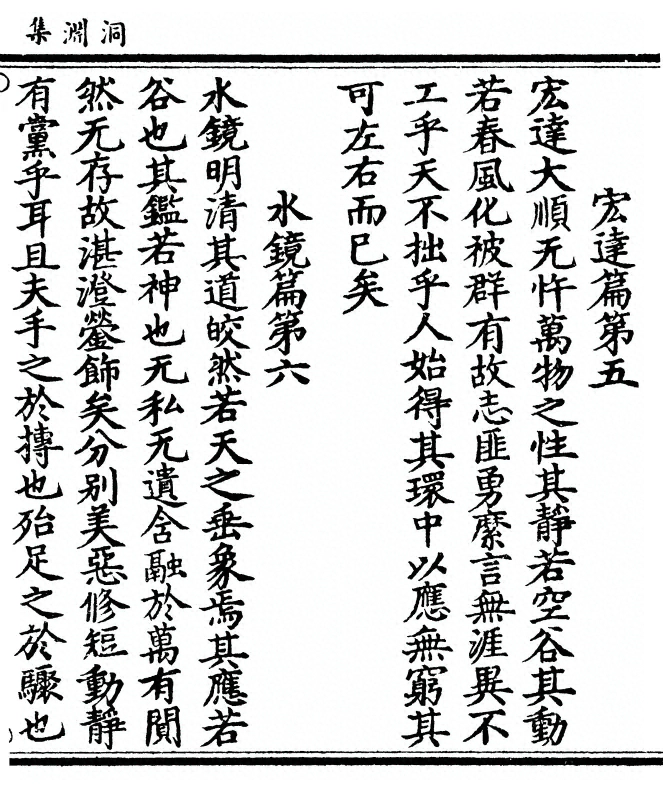 洞淵集
宏達篇第五
宏達大順无忤萬物之性其靜若空谷其動
若春風化被群有故志匪勇縻言無涯異不
工乎天不拙乎人始得其環中以應無窮其
可左右而已矣
水鏡篇第六
水鏡明清其道皎然若天之垂象焉其應若
谷也其鑑若神也无私无遺含融於萬有閴
然无存故湛澄鎣飾矣分別美惡修短動靜
有黨乎耳且夫手之於摶也殆足之於驟也